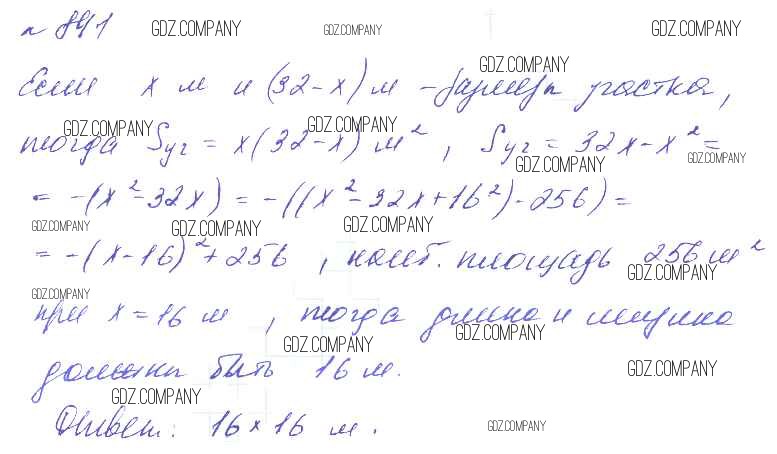 № 891 GDZ.COMPANY GDZ.COMPANY GDZ.COMPANY
GDZ.COMPANY
Если x м и (32-x) м - размеры участка,
GDZ.COMPANY GDZ.COMPANY
тогда Sуч = x(32-x) м², Sуч = 32x - x² =
GDZ.COMPANY GDZ.COMPANY
= -(x² - 32x) = -((x² - 32x + 16²) - 256) =
GDZ.COMPANY GDZ.COMPANY GDZ.COMPANY
= -(x-16)² + 256, наиб. площадь 256 м²
GDZ.COMPANY
GDZ.COMPANY
при x = 16 м, тогда длина и ширина
GDZ.COMPANY
GDZ.COMPANY
должны быть 16 м.
GDZ.COMPANY
GDZ.COMPANY
Ответ: 16 × 16 м.
GDZ.COMPANY